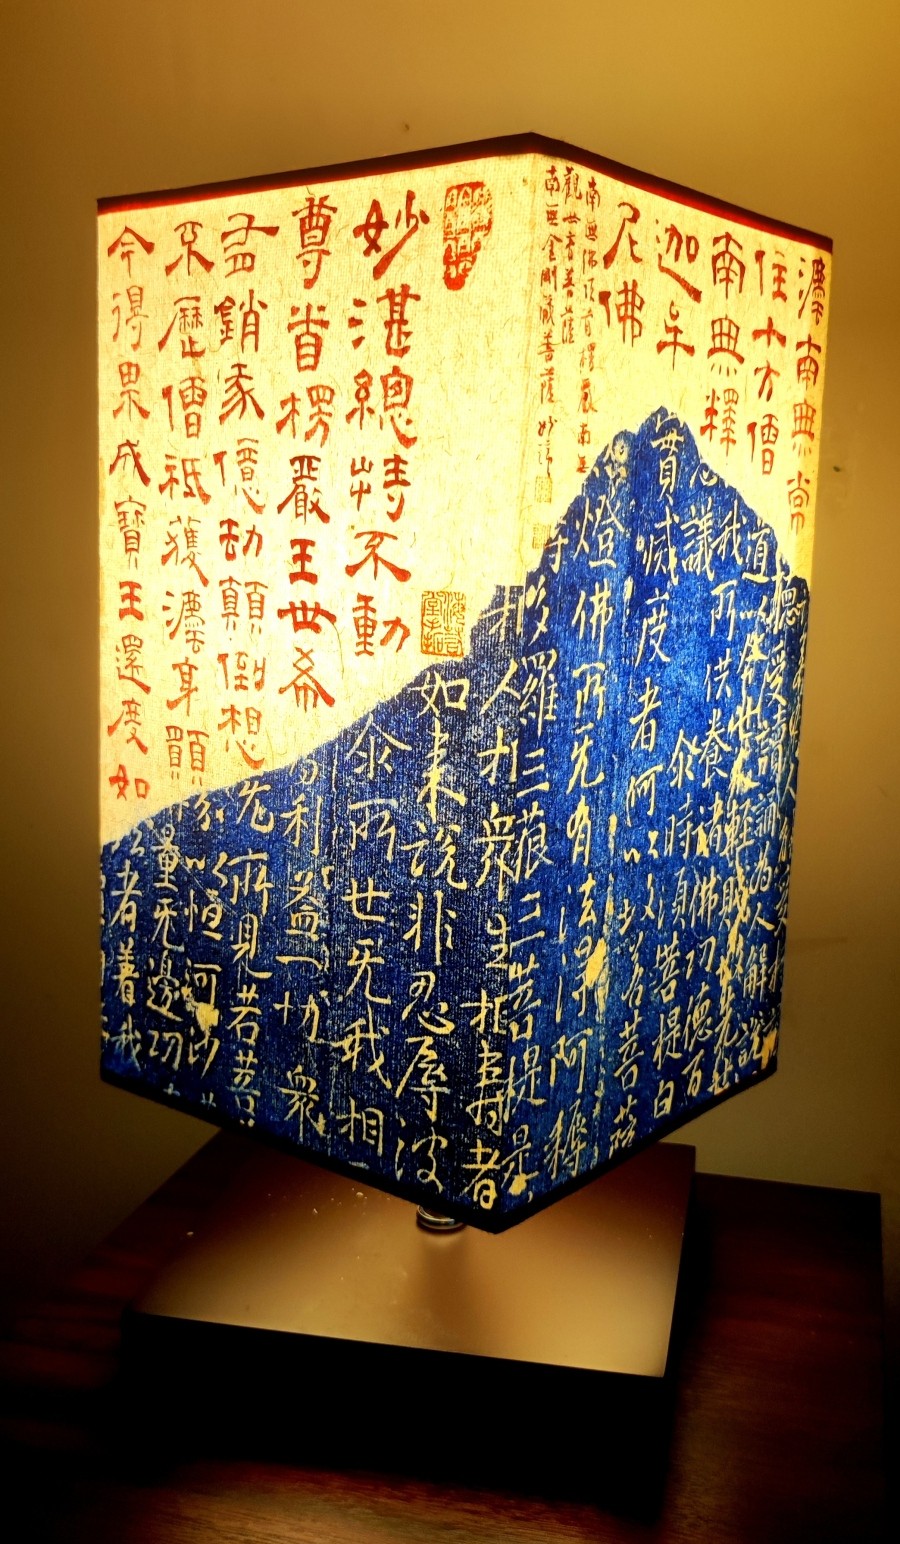 灋南無常
住十方僧
南無釋
迦牟
尼佛
南無佛頂首楞嚴南無
觀世音菩薩
南無金剛藏菩薩
受持讀誦為人解說
道以今世人輕賤故先世
我所供養諸佛功德百
議尒時須菩提白
實滅度者何以故若菩薩
燈佛所无有法得阿耨
羅三藐三菩提是
相人相衆生相壽者
妙湛總持不動
尊首楞嚴王世希
有銷我億劫顛倒想
不歷僧祇獲灋身願
今得果成寶王還度如
如來說非忍辱波
尒所世无我相
利益一切衆
先所見若菩
以恒河沙
量无邊功
者善我